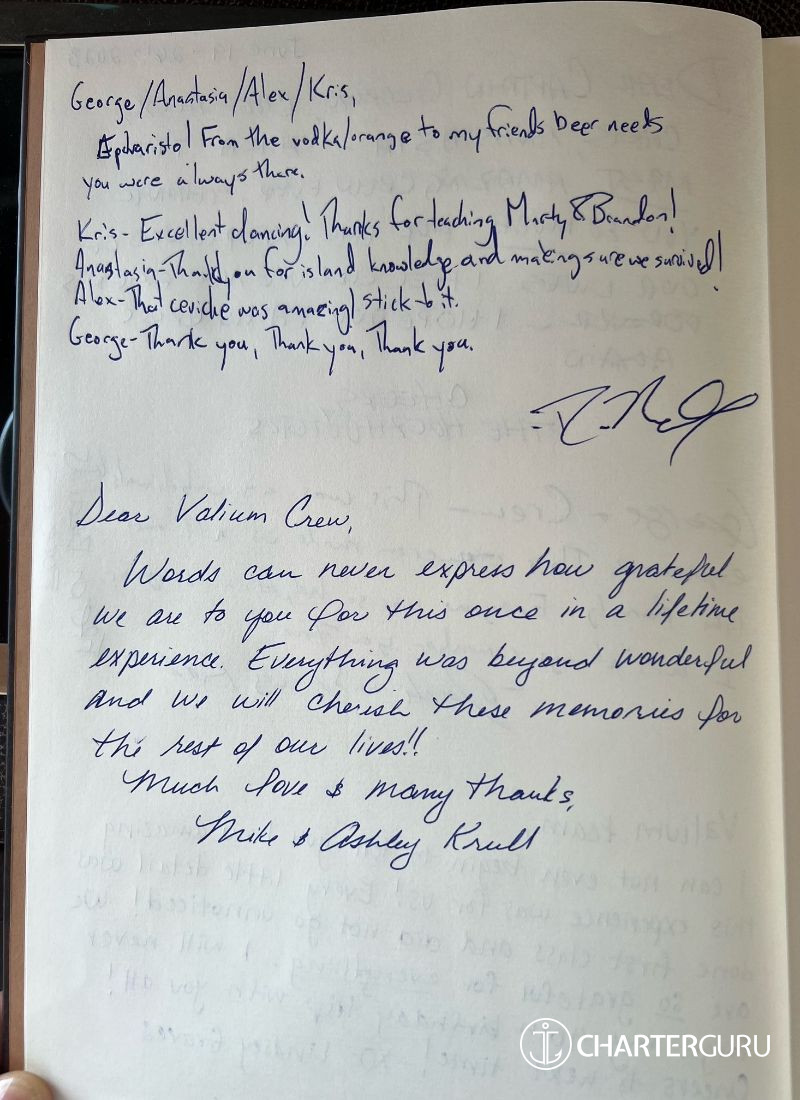 George/Anastasia/Alex/Kris,
Epharisto! From the vodka/orange to my friends beer needs
you were always there.
Kris- Excellent dancing! Thanks for teaching Marty & Brandon!
Anastasia-Thank you for island knowledge and making sure we survived!
Alex-That ceviche was amazing! stick to it.
George-Thank you, Thank you, Thank you.
Dear Valium Crew,
Words can never express how grateful
we are to you for this once in a lifetime
experience. Everything was beyond wonderful
and we will cherish these memories for
the rest of our lives!!
Much love & many thanks,
Mike & Ashley Krull
CHARTERGURU